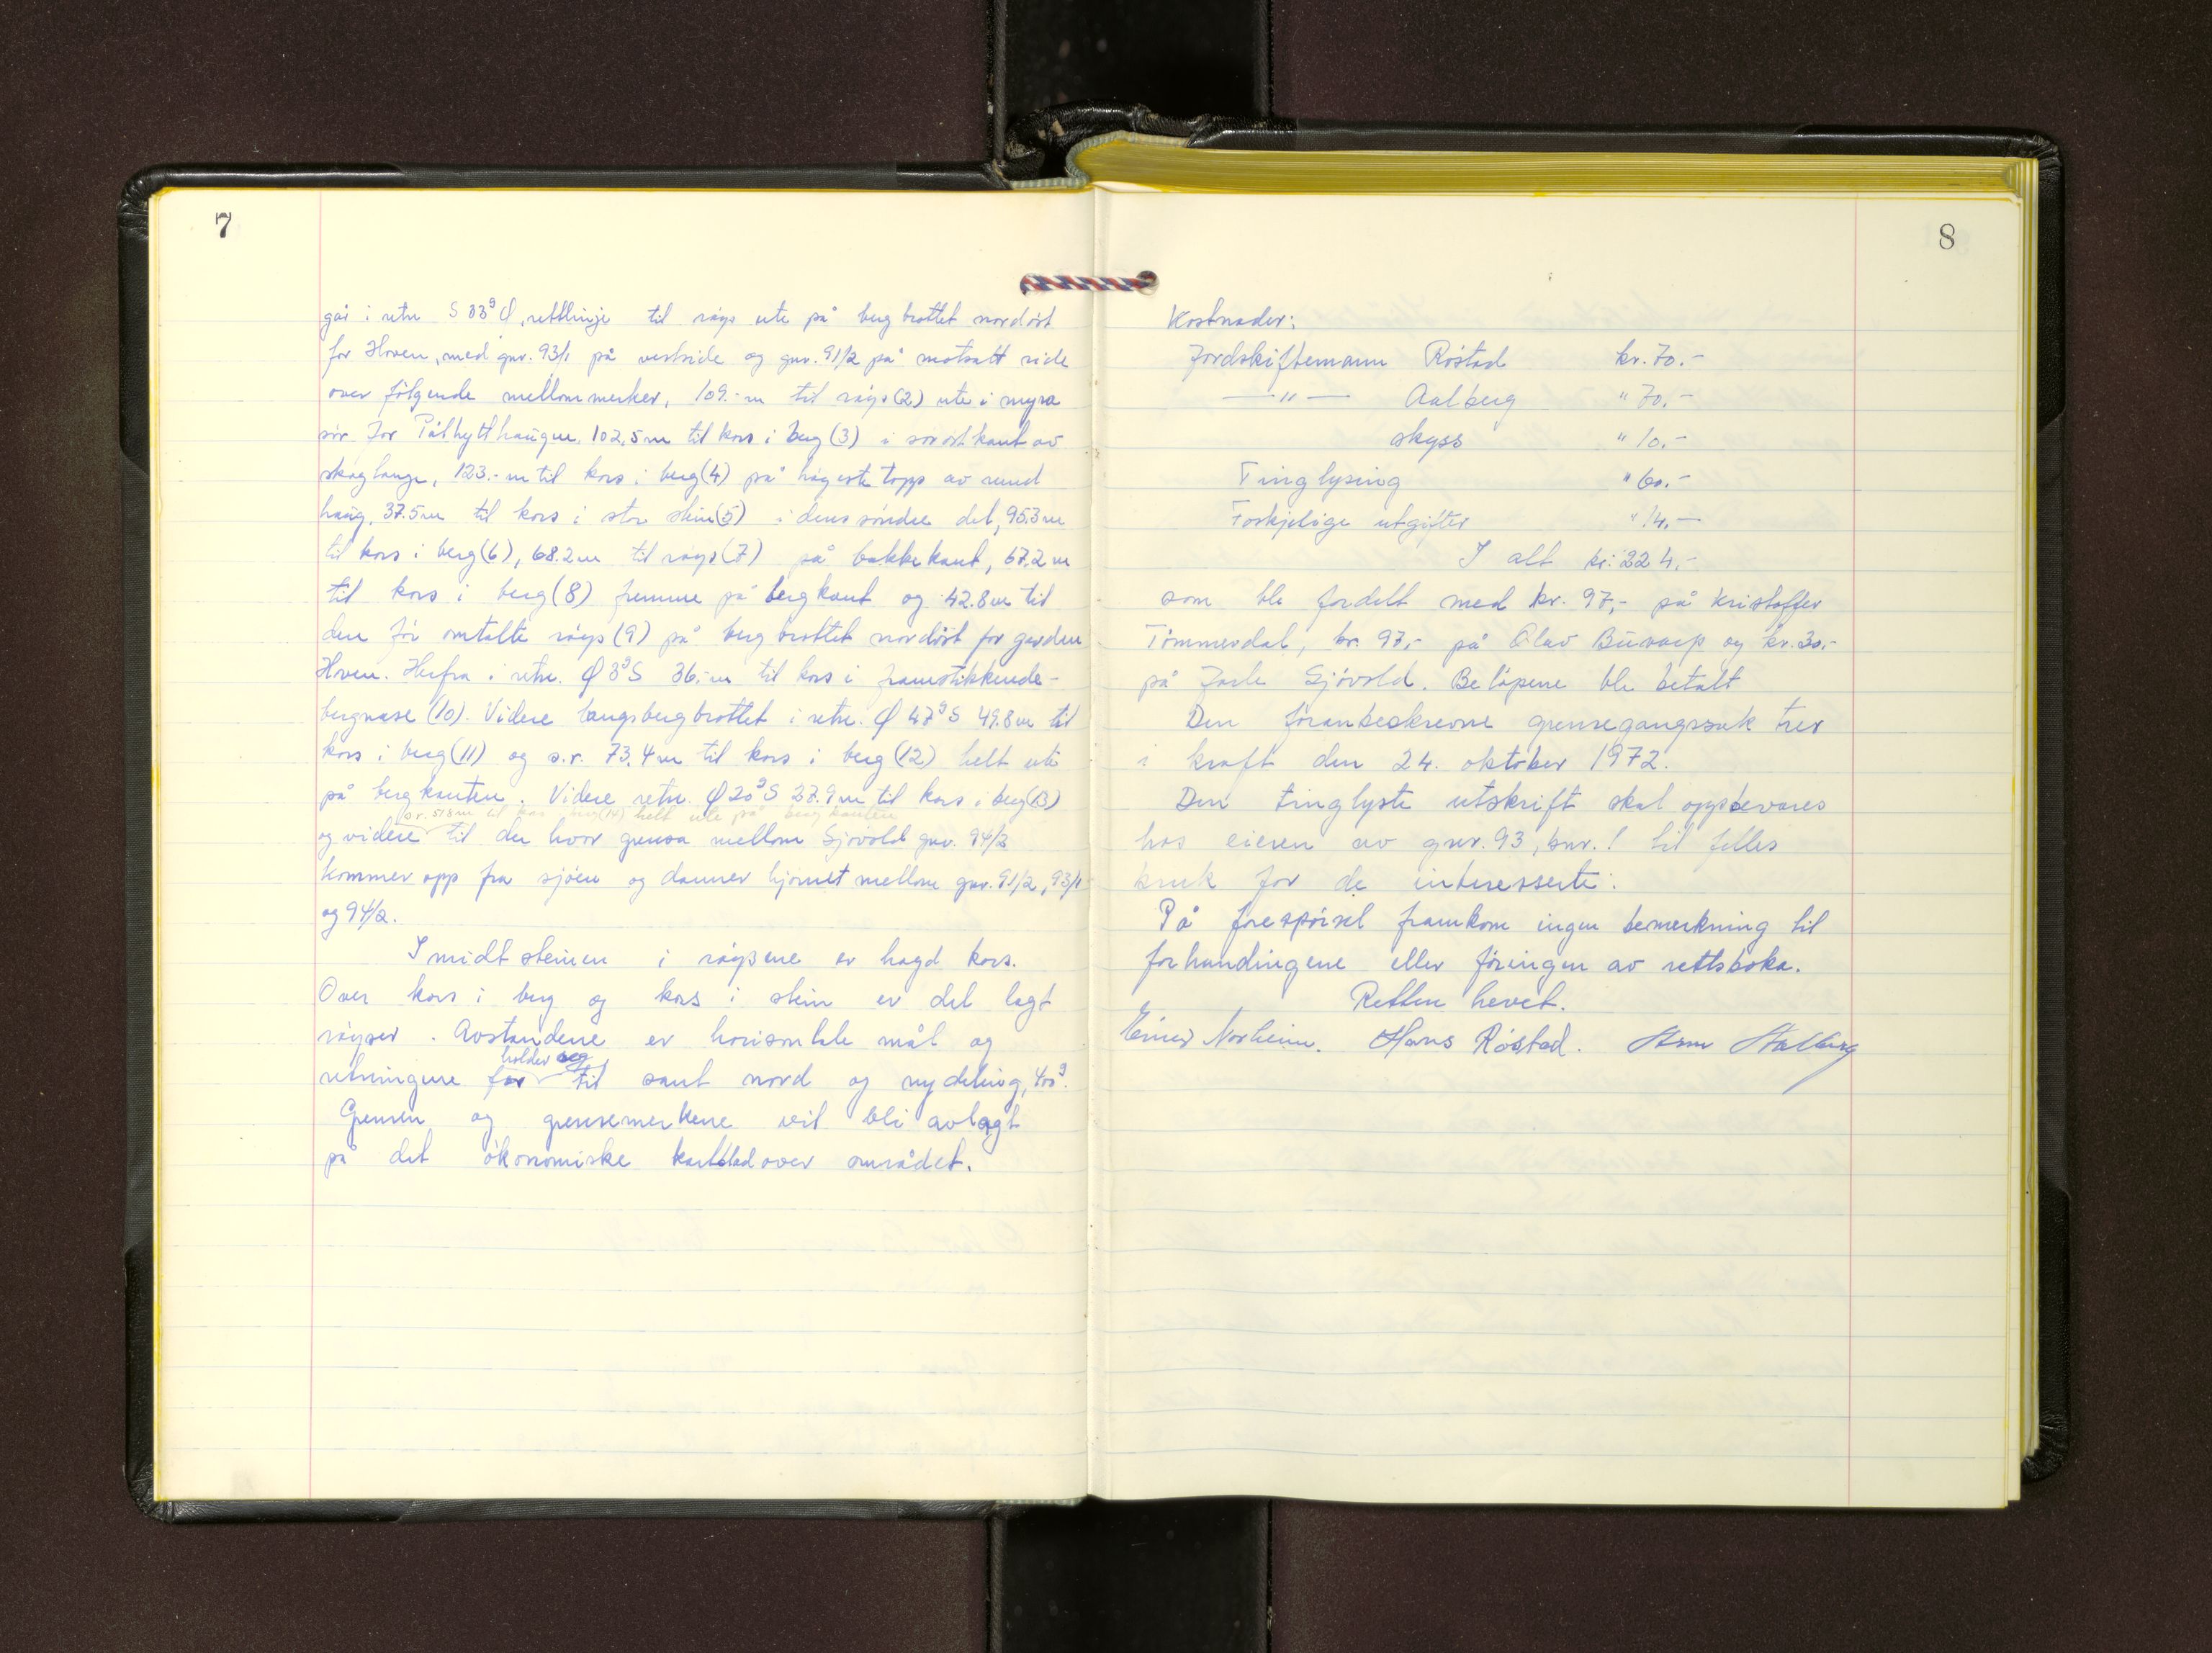 7
går i retn S 33g Ø, rettlinje til røys ute på bergbrottet nordøst
for Hoven, med gnr. 93/1 på vestside og gnr. 91/2 på motsatt side
over følgende mellommerker, 109.- m til røys (2) ute i myra
sør for Påthytthaugen. 102,5 m til kors i berg (3) i sørøstkant av
skoglange, 123.- m til kors i berg (4) på høgeste topp av rund
haug, 37.5 m til kors i stor stein (5) i dens søndre del, 95.3 m
til kors i berg (6), 68.2 m til røys (7) på bakkekant, 67.2 m
til kors i berg (8) fremme på bergkant og 42.8 m til
den før omtalte røys (9) på bergbrottet nordøst for garden
Hoven. Herfra i retn. Ø 3g S 36,- m til kors i framstikkende-
bergnase (10). Videre langs bergbrottet i retn. Ø 47g S 49.8 m til
kors i berg (11) og s.r. 73,4 m til kors i berg (12) helt ute
på bergkanten. Videre retn. Ø 20g S 27.9 m til kors i berg (13)
s.r. 51.8 m til kors i berg (14) helt ute på bergkanten
og videre til der hvor grensa mellom Sjøvold gnr. 94/2
kommer opp fra sjøen og danner hjørnet mellom gnr. 91/2, 93/1
og 94/2.
I midtsteinen i røysene er hogd kors.
Over kors i berg og kors i stein er det lagt
røyser. Avstandene er horisontale mål og
holder seg
retningene før til sant nord og nydeling, 400g.
Grensen og grensemerkene vil bli avlagt
på det økonomiske kartblad over området.
8
Kostnader:
Jordskiftemann Røstad kr. 70.-
—"— Aalberg " 70.-
skyss " 10.-
Tinglysing " 60.-
Forskjelige utgifter " 14,-
I alt kr. 224.-
som ble fordelt med kr. 97,- på Kristoffer
Tømmerdal, kr. 97,- på Olav Buvarp og kr. 30,-
på Jarle Sjøvold. Beløpene ble betalt
Den foranbeskrevne grensegangssak trer
i kraft den 24. oktober 1972.
Den tinglyste utskrift skal oppbevares
hos eieren av gnr. 93, bnr. 1 til felles
bruk for de interesserte.
På forespørsel framkom ingen bemerkning til
forhandingene eller føringen av rettsboka.
Retten hevet.
Einar Norheim. Hans Røstad. Aalberg